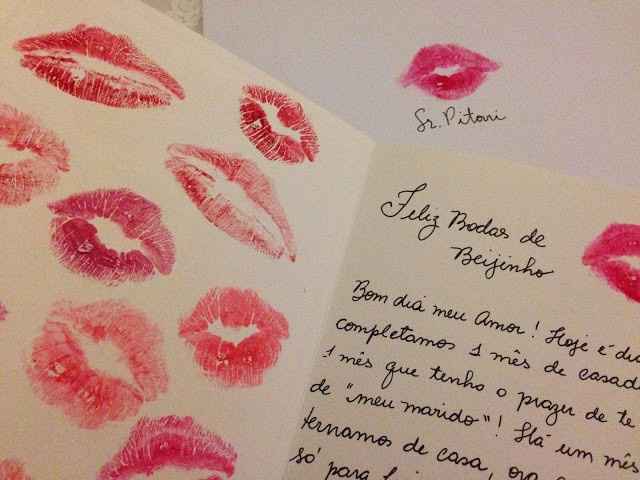 Sr. Pitori
Feliz Bodas de
Beijinho
Bom dia meu Amor! Hoje é
completamos 1 mês de
1 mês que tenho o prazer de te
de "meu marido"! Há um mês
de casa,
só para